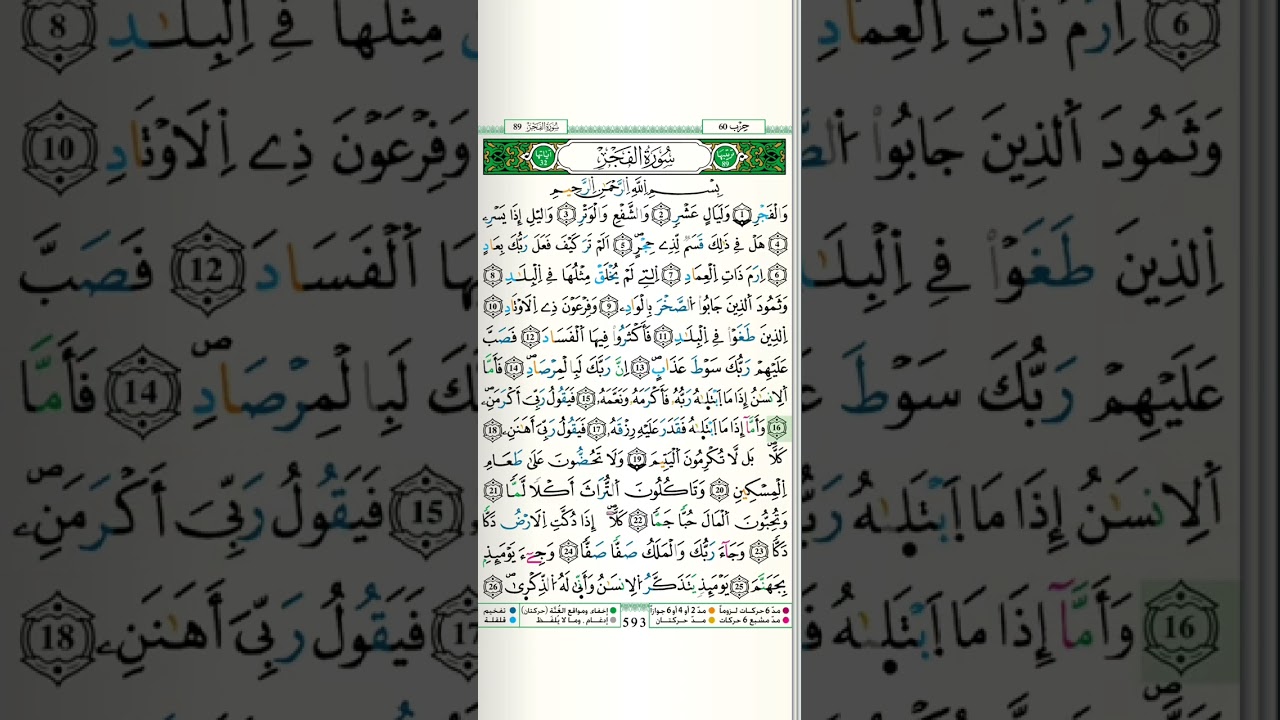 حِزْب 60
سُورَةُ الفَجْرِ 89
ترتيبها 89 سُورَةُ الفَجْرِ آياتها 32
بِسْمِ اِللَّهِ اِلرَّحْمَٰنِ اِلرَّحِيمِ
وَالْفَجْرِ 1 وَلَيَالٍ عَشْرٍ 2 وَالشَّفْعِ وَالْوَتْرِ 3 وَاليْلِ إِذَا يَسْرِۦ
4 هَلْ فِے ذَٰلِكَ قَسَمٞ لِّذِے حِجْرٍۖ 5 اَلَمْ تَرَ كَيْفَ فَعَلَ رَبُّكَ بِعَادٍ
6 اِرَمَ ذَاتِ اِلْعِمَادِ 7 اِلتِے لَمْ يُخْلَقْ مِثْلُهَا فِے اِلْبِلَٰدِ 8
وَثَمُودَ اَلذِينَ جَابُواْ اُلصَّخْرَ بِالْوَادِۦ 9 وَفِرْعَوْنَ ذِے اِلَاوْتَادِ 10
اِلذِينَ طَغَوْاْ فِے اِلْبِلَٰدِ 11 فَأَكْثَرُواْ فِيهَا اَلْفَسَادَ 12 فَصَبَّ
عَلَيْهِمْ رَبُّكَ سَوْطَ عَذَابٍۖ 13 اِنَّ رَبَّكَ لَبِالْمِرْصَادِۖ 14 فَأَمَّا
اَلِانسَٰنُ إِذَا مَا اَبْتَلَيٰهُ رَبُّهُۥ فَأَكْرَمَهُۥ وَنَعَّمَهُۥ 15 فَيَقُولُ رَبِّيَ أَكْرَمَنِۦۖ
16 وَأَمَّآ إِذَا مَا اَبْتَلَيٰهُ فَقَدَرَ عَلَيْهِ رِزْقَهُۥ 17 فَيَقُولُ رَبِّيَ أَهَٰنَنِۦ 18
كَلَّاۖ بَل لَّا تُكْرِمُونَ اَلْيَتِيمَ 19 وَلَا تَحُضُّونَ عَلَىٰ طَعَامِ
اِلْمِسْكِينِ 20 وَتَاكُلُونَ اَلتُّرَاثَ أَكْلاٗ لَّمّاٗ 21
وَتُحِبُّونَ اَلْمَالَ حُبّاٗ جَمّاٗ 22 كَلَّاۖ إِذَا دُكَّتِ اِلَارْضُ دَكّاٗ
دَكّاٗ 23 وَجَآءَ رَبُّكَ وَالْمَلَكُ صَفّاٗ صَفّاٗ 24 وَجِےٓءَ يَوْمَئِذِۢ
بِجَهَنَّمَ 25 يَوْمَئِذٖ يَتَذَكَّرُ اُلِانسَٰنُ وَأَنَّىٰ لَهُ اُلذِّكْرَىٰۖ 26
مدّ 6 حركات لزوماً
مدّ 2 أو 4 أو 6 جوازاً
مدّ مشبع 6 حركات
مدّ حركتان
593
إخفاء، ومواقع الغُنَّة (حركتان)
إدغام، وما لا يُلفَظ
تفخيم
قلقلة